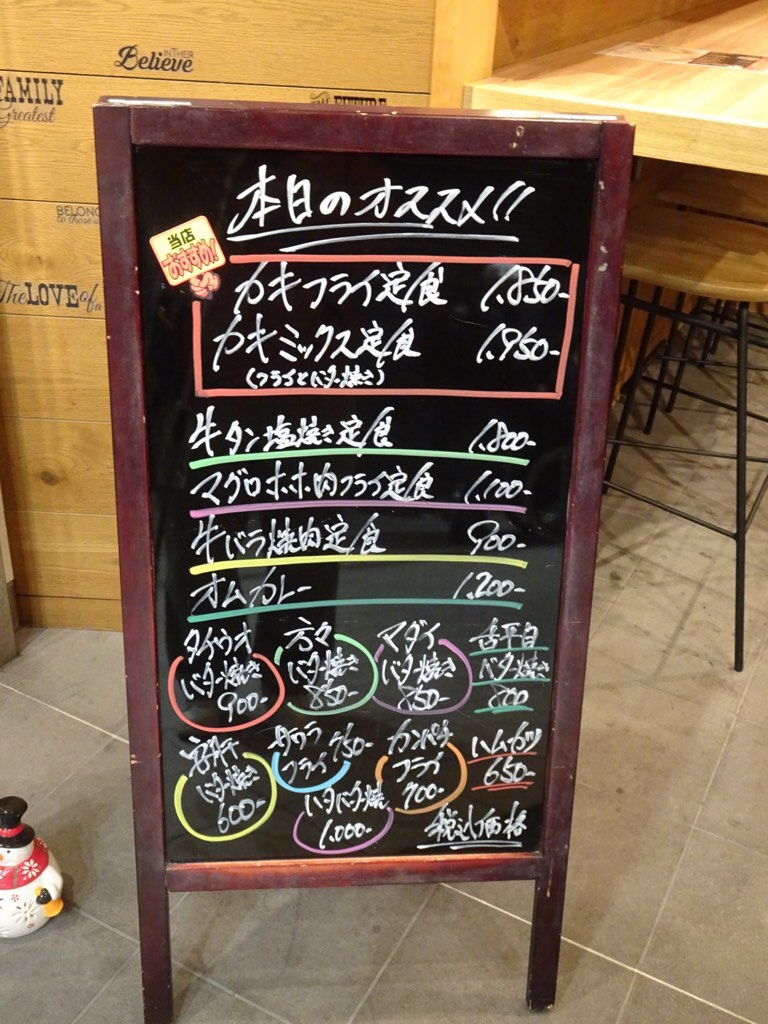 IN THEIR
Believe
FAMILY
Greatest
BELONG
The LOVE of a
本日のオススメ!!
当店
おすすめ!
カキフライ定食 1,850-
カキミックス定食 1,950-
(フライとバター焼き)
牛タン塩焼き定食 1,800-
マグロホホ肉フライ定食 1,100-
牛バラ焼肉定食 900-
オムカレー 1,200-
タイウオ
バター焼き
900-
方々
バター焼き
850-
マダイ
バター焼き
850-
舌平目
バター焼き
800
バター焼き
600-
サワラ 750-
フライ
ハタバター焼
1,000-
カンパチ
フライ
700-
ハムカツ
650-
税込価格